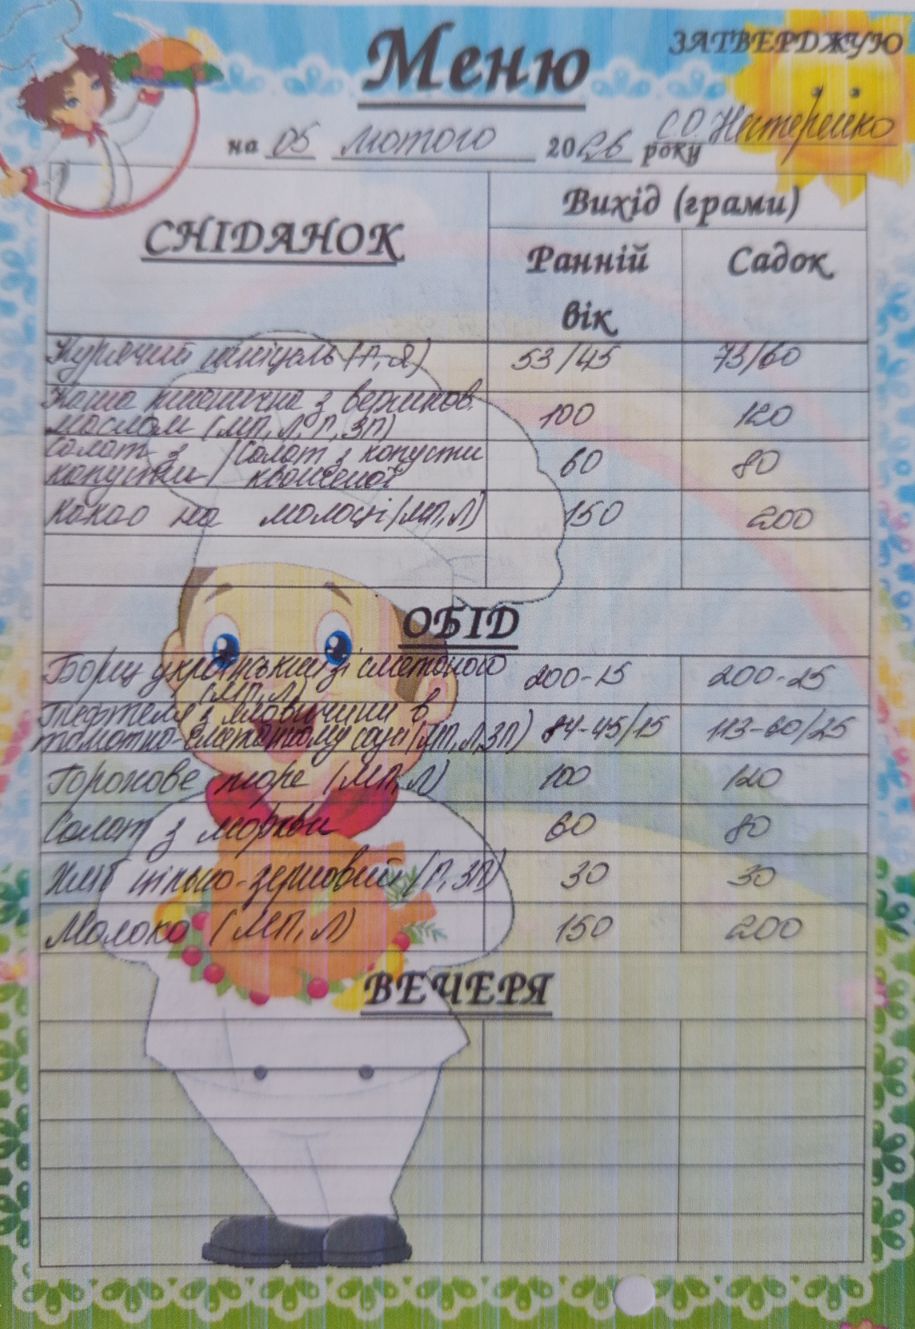 Меню
ЗАТВЕРДЖУЮ
на 05 лютого 2026 року С.О.
СНІДАНОК
Вихід (грами)
Ранній вік
Садок
Курячий шніцель (Г, Я) 53/45 73/60
Каша пшенична з вершков.
маслом (МП, Л, Г, ЗП) 100 120
Салат з / Салат з капусти
капусти / квашеної 60 80
Какао на молоці (МП, Л) 150 200
ОБІД
Борщ український зі сметаною
(МП, Л) 200-15 200-25
Тефтеля з яловичини в
томатно-сметаному соусі (МП, Л, ЗП) 84-45/15 113-60/25
Горохове пюре (МП, Л) 100 120
Салат з моркви 60 80
Хліб цільно-зерновий (Г, ЗП) 30 30
Молоко (МП, Л) 150 200
ВЕЧЕРЯ